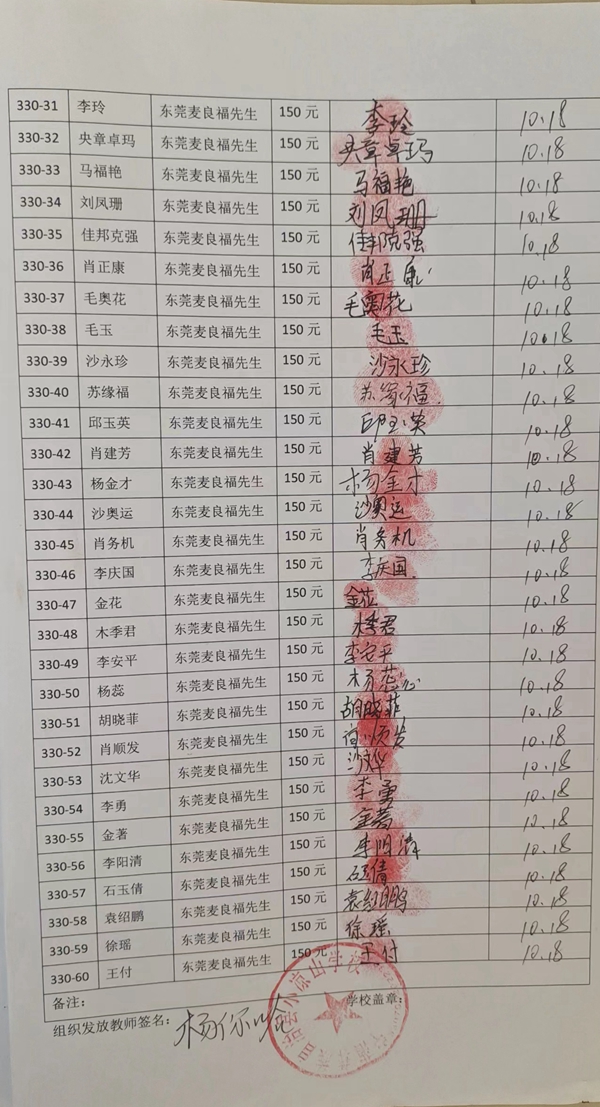 330-31 李玲 东莞麦良福先生 150 元 李玲 10.18
330-32 央章卓玛 东莞麦良福先生 150 元 央章卓玛 10.18
330-33 马福艳 东莞麦良福先生 150 元 马福艳 10.18
330-34 刘凤珊 东莞麦良福先生 150 元 刘凤珊 10.18
330-35 佳邦克强 东莞麦良福先生 150 元 佳邦克强 10.18
330-36 肖正康 东莞麦良福先生 150 元 肖正康 10.18
330-37 毛奥花 东莞麦良福先生 150 元 毛奥花 10.18
330-38 毛玉 东莞麦良福先生 150 元 毛玉 10.18
330-39 沙永珍 东莞麦良福先生 150 元 沙永珍 10.18
330-40 苏缘福 东莞麦良福先生 150 元 苏缘福 10.18
330-41 邱玉英 东莞麦良福先生 150 元 邱玉英 10.18
330-42 肖建芳 东莞麦良福先生 150 元 肖建芳 10.18
330-43 杨金才 东莞麦良福先生 150 元 杨金才 10.18
330-44 沙奥运 东莞麦良福先生 150 元 沙奥运 10.18
330-45 肖务机 东莞麦良福先生 150 元 肖务机 10.18
330-46 李庆国 东莞麦良福先生 150 元 李庆国 10.18
330-47 金花 东莞麦良福先生 150 元 金花 10.18
330-48 木季君 东莞麦良福先生 150 元 木季君 10.18
330-49 李安平 东莞麦良福先生 150 元 李安平 10.18
330-50 杨蕊 东莞麦良福先生 150 元 杨蕊 10.18
330-51 胡晓菲 东莞麦良福先生 150 元 胡晓菲 10.18
330-52 肖顺发 东莞麦良福先生 150 元 肖顺发 10.18
330-53 沈文华 东莞麦良福先生 150 元 10.18
330-54 李勇 东莞麦良福先生 150 元 李勇 10.18
330-55 金著 东莞麦良福先生 150 元 金著 10.18
330-56 李阳清 东莞麦良福先生 150 元 李阳清 10.18
330-57 石玉倩 东莞麦良福先生 150 元 石玉倩 10.18
330-58 袁绍鹏 东莞麦良福先生 150 元 袁绍鹏 10.18
330-59 徐瑶 东莞麦良福先生 150 元 徐瑶 10.18
330-60 王付 东莞麦良福先生 150 元 王付 10.18
备注:
组织发放教师签名: 学校盖章:
小凉山学校